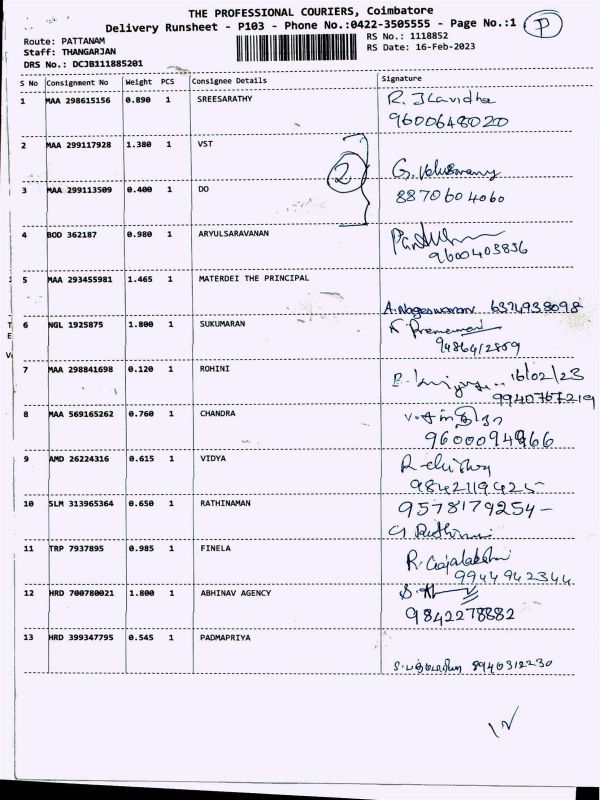 THE PROFESSIONAL COURIERS, Coimbatore
Delivery Runsheet - P103 - Phone No.:0422-3505555 - Page No.:1 P
Route: PATTANAM
Staff: THANGARJAN
DRS No.: DCJB111885201
RS No.: 1118852
RS Date: 16-Feb-2023
S No Consignment No Weight PCS Consignee Details Signature
1 MAA 298615156 0.890 1 SREESARATHY
9600648020
2 MAA 299117928 1.380 1 VST
2
3 MAA 299113509 0.400 1 DO
8870604060
4 BOD 362187 0.980 1 ARYULSARAVANAN
9600403836
5 MAA 293455981 1.465 1 MATERDEI THE PRINCIPAL
A. Nageswaran 6374938098
6 NGL 1925875 1.800 1 SUKUMARAN
7 MAA 298841698 0.120 1 ROHINI
16/02/23
9940767219
8 MAA 569165262 0.760 1 CHANDRA
9600094966
9 AMD 26224316 0.615 1 VIDYA
9842119425
10 SLM 313965364 0.650 1 RATHINAMAN
9578179254
11 TRP 7937895 0.985 1 FINELA
R. Gajalakshmi
9944942344
12 HRD 700780021 1.800 1 ABHINAV AGENCY
9842278882
13 HRD 399347795 0.545 1 PADMAPRIYA
8940312230